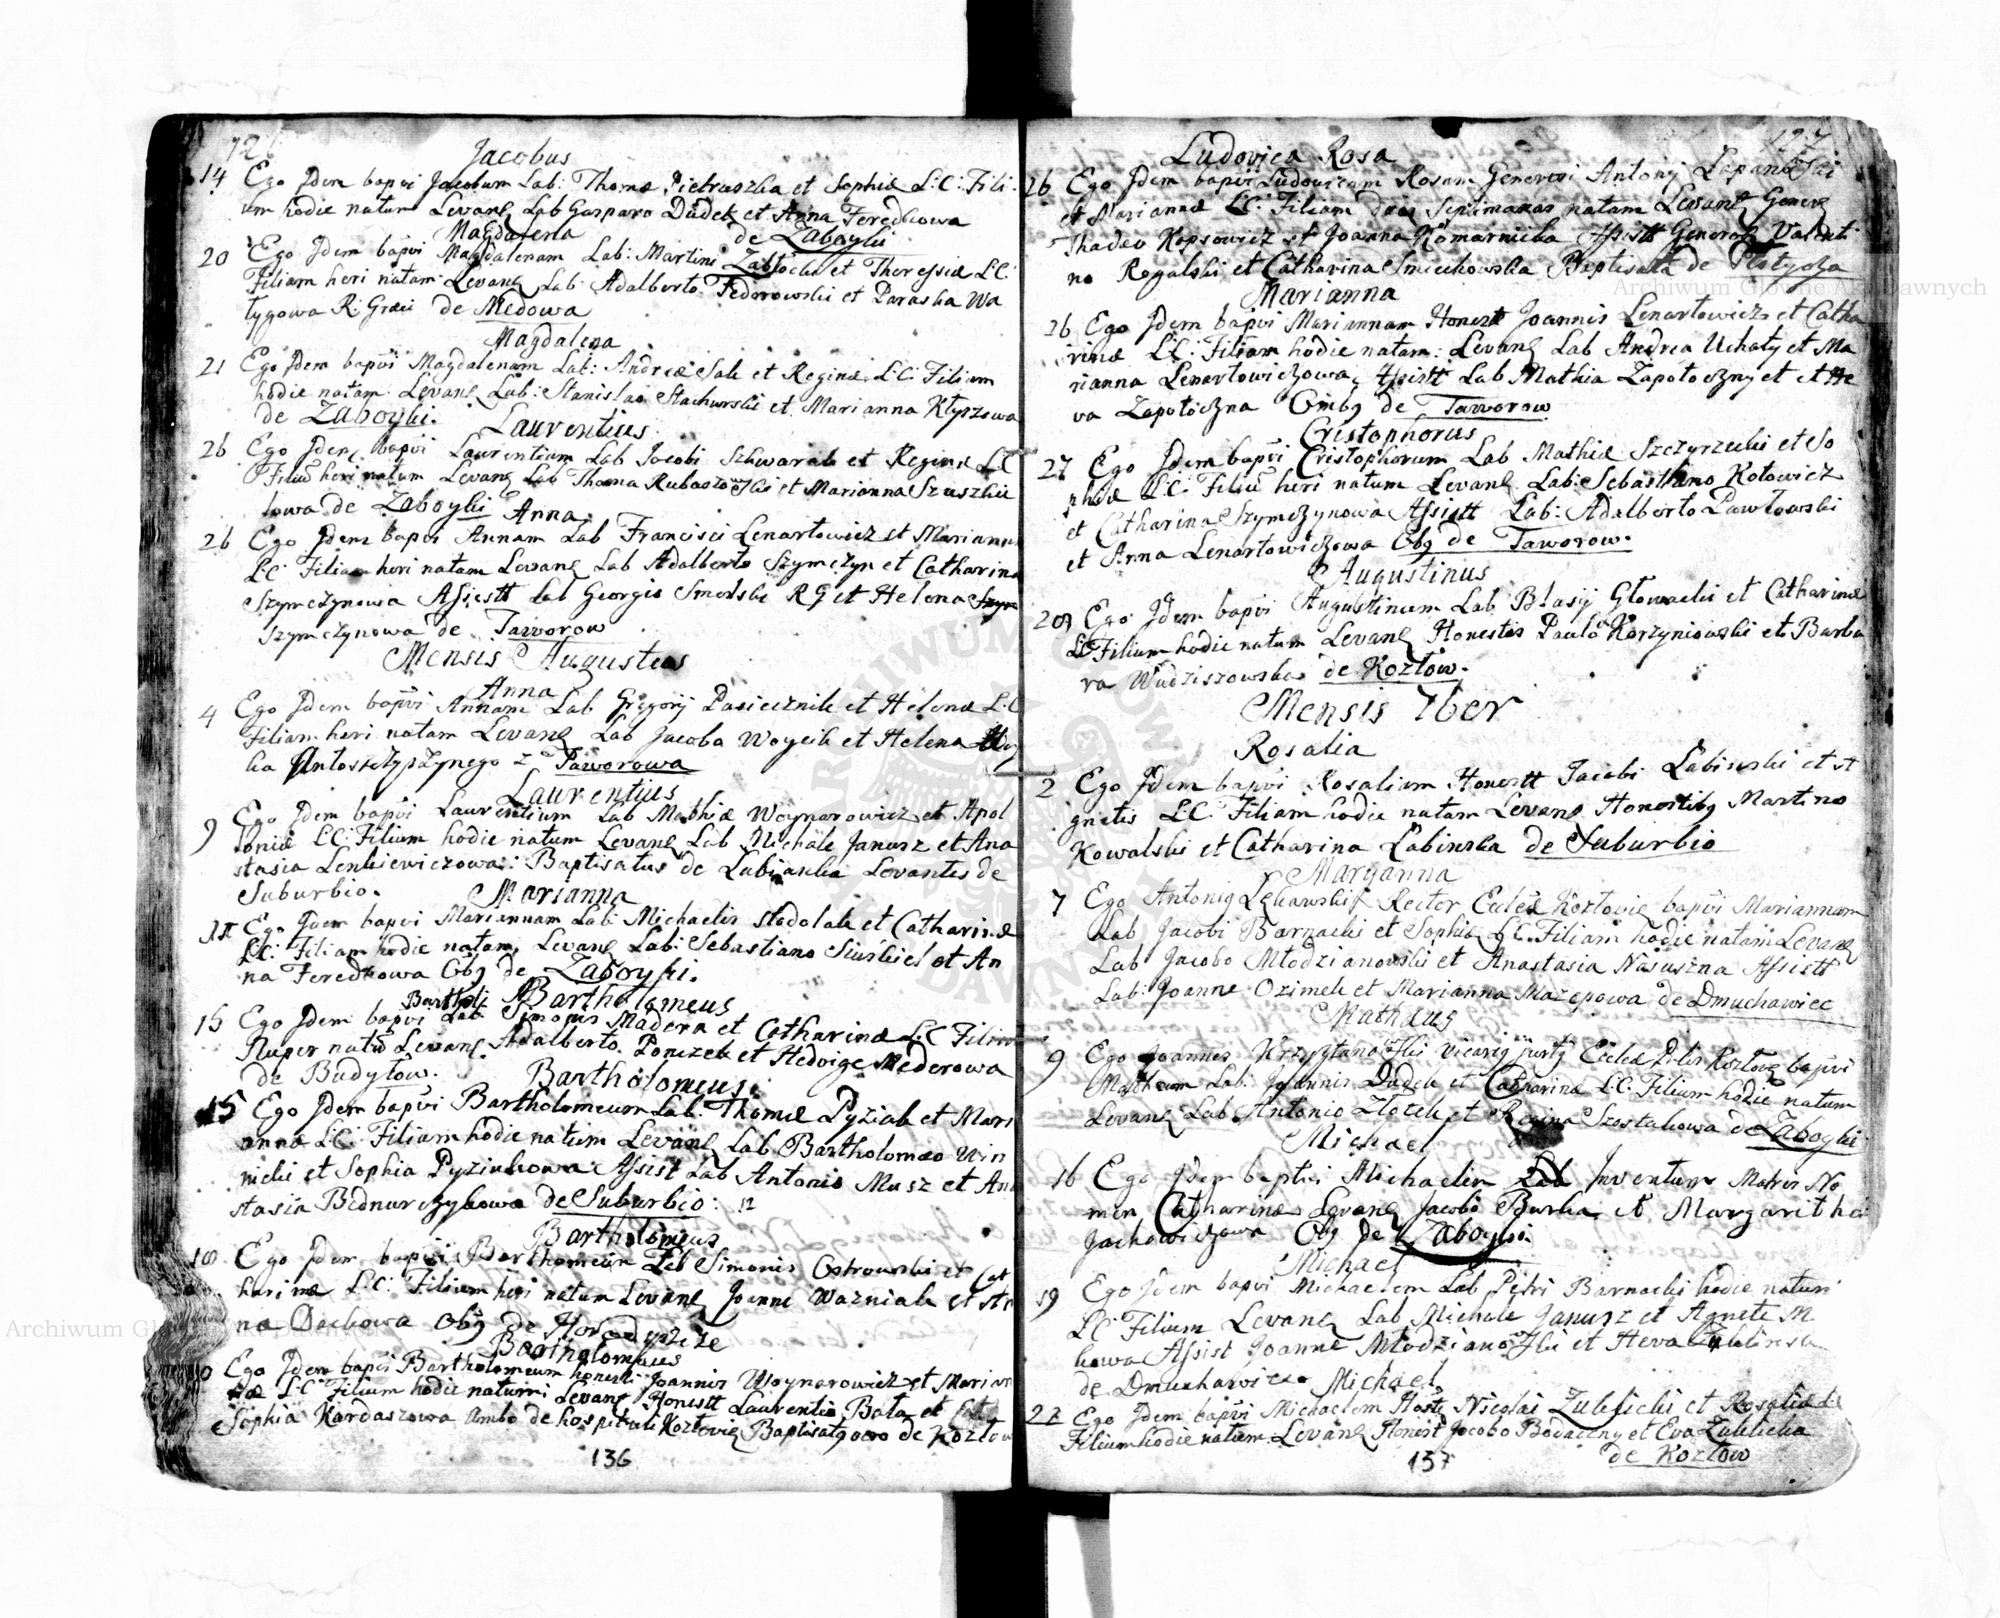 12
Jacobus
14 Ego Idem bapvi Jacobum Lab: Thomæ Pietruszka et Sophiæ L: C: Fili-
um hodie natum Levane Lab Gasparo Dudek et Anna Feredkowa
Magdalena de Zaboyki
20 Ego Idem bapvi Magdalenam Lab: Martini Zabłocki et Theressiæ L C
Filiam heri natam Levane Lab Adalberto Fedorowski et Paraska Wa
tygowa R: Græci de Medowa
Magdalena
21 Ego Idem bapvi Magdalenam Lab: Andreæ Sak et Reginæ L C: Filiam
hodie natam Levane Lab: Stanislao Stachurski et Marianna Kłyszowa
de Zaboyki. Laurentius
26 Ego Idem bapvi Laurentium Lab Jacobi Skwarek et Reginæ L C
Filiū heri natum Levane Lab Thoma et Marianna
kowa de Zaboyki Anna
26 Ego Idem bapvi Annam Lab Francisci Lenartowicz et Mariann
L C: Filiam heri natam Levane Lab Adalberto Szymczyn et Catharina
Szymczynowa Assistt Lab Georgio Smolski R G et Helena
Szymczynowa de Taworow
Mensis Augustus
Anna
4 Ego Idem bapvi Annam Lab Gregorij Pasiecznik et Helenæ L: C
Filiam heri natam Levane Lab Jacoba Woycik et Helena
ka z Taworowa
Laurentius
9 Ego Idem bapvi Laurentium Lab Mathiæ Woynarowicz et Apol
loniæ L C: Filium hodie natum Levane Lab Michäle Janusz et Ana
stasia Lenkiewiczowa: Baptisatus de Lubianka Levantes de
Suburbio. Marianna
Ego Idem bapvi Mariannam Lab: Michaelis Stodolak et Catharinæ
L C: Filiam hodie natam, Levane Lab: Sebastiano et An
na Feredkowa Obg de Zaboyki.
Bartholomeus
15 Ego Idem bapvi Lab Simonis Madera et Catharinæ L: C Filium
Nuper natū Levane Adalberto Ponczek et Hedvige Mederowa
de Budyłow. Bartholomeus
15 Ego Idem bapvi Bartholomeum Lab: Thomæ Pyziak et Mari
annæ L C: Filiam hodie natum Levane Lab Bartholomæo Win
nicki et Sophia Pyziukowa Assist Lab Antonio Musz et Ana
stasia Bednarczykowa de Suburbio:
Bartholomeus
18 Ego Idem bapvi Bartholomeum Lab Simonis Ostrowski et Cat
harinæ L C: Filium heri natum Levane Joanne Wazniak et An
na Dachowa Obg de Horodyszcze
Bartholomeus
Ego Idem bapvi Bartholomeum honesti Joannis Woynarowicz et Marian
næ L C: Filium hodie natum Levane Honestt Laurentio Bata et
Sophia Kardaszowa Ambo de hospitali Kozłovie Baptisatg de Kozłow
136
127
Ludovica Rosa
26 Ego Idem bapvi Ludovicam Rosam Generosi Antonij
et Mariannæ L C: Filiam duas Septimanas natam Levane Gener
Thadeo Kopsowicz et Joanna Komarnicka Assistt Generos Valenti
no Rogalski et Catharina Smiechowska Baptisata de Płotycza
Marianna
26 Ego Idem bapvi Mariannam Honest Joannis Lenartowicz et Catha
rinæ L C: Filiam hodie natam: Levane Lab Andrea Uchaty et Ma
rianna Lenartowiczowa, Assistt Lab Mathia Zapotoczny et et He
va Zapotoczna Ombg de Taworow
Cristophorus
27 Ego Idem bapvi Cristophorum Lab Mathiæ Szczyrzecki et So
phiæ L C: Filiū heri natum Levane Lab: Sebasthiano Kotowicz
et Catharina Szymczynowa Assistt Lab: Adalberto Pawłowski
et Anna Lenartowiczowa Obg de Taworow.
Augustinus
Ego Idem bapvi Augustinum Lab Blasij Głowacki et Catharinæ
L C Filium hodie natum Levane Honestis Paulo Korzyniowski et Barba
ra Wudziszowska de Kozłow.
Mensis 7ber
Rosalia
2 Ego Idem bapvi Rosaliam Honestt Jacobi Łabinski et A
gnetis L C: Filiam hodie natam Levane Honestibg Martino
Kowalski et Catharina Łabinska de Suburbio
Maryanna
7 Ego Antonig Rector Eccles Kozłovie bapvi Mariannam
Lab Jacobi Barnacki et Sophiæ L C: Filiam hodie natam Levane
Lab Jacobo Młodzianowski et Anastasia Assistt
Lab: Joanne Ozimek et Marianna Mazepowa de Dmuchawiec
Mathæus
9 Ego Joannes Vicarig Kozłove bapvi
Matheum Lab: Joannis Dudek et Catharinæ L C: Filium hodie natum
Levane Lab Antonio Złotek et Regina Szostakowa de Zaboyki
Michael
16 Ego Idem baptvi Michaelem Inventum Matris No
men Catharinæ Levane Jacobo Burka et Margaritha
Jachowiczowa Obg de Zaboyki
Michael
19 Ego Idem bapvi Michaelem Lab Petri Barnacki hodie natum
L C: Filium Levane Lab Michäle Janusz et Agnete M
kowa Assist Joanne Młodzianowski et Heva
de Dmuchawiec Michael
27 Ego Idem bapvi Michaelem Nicolai Zublicki et Rosaliæ L C
Filium hodie natum Levane Honest Jacobo Bodaczny et Eva Zublicka
de Kozłow
137
Archiwum Główne Akt Dawnych